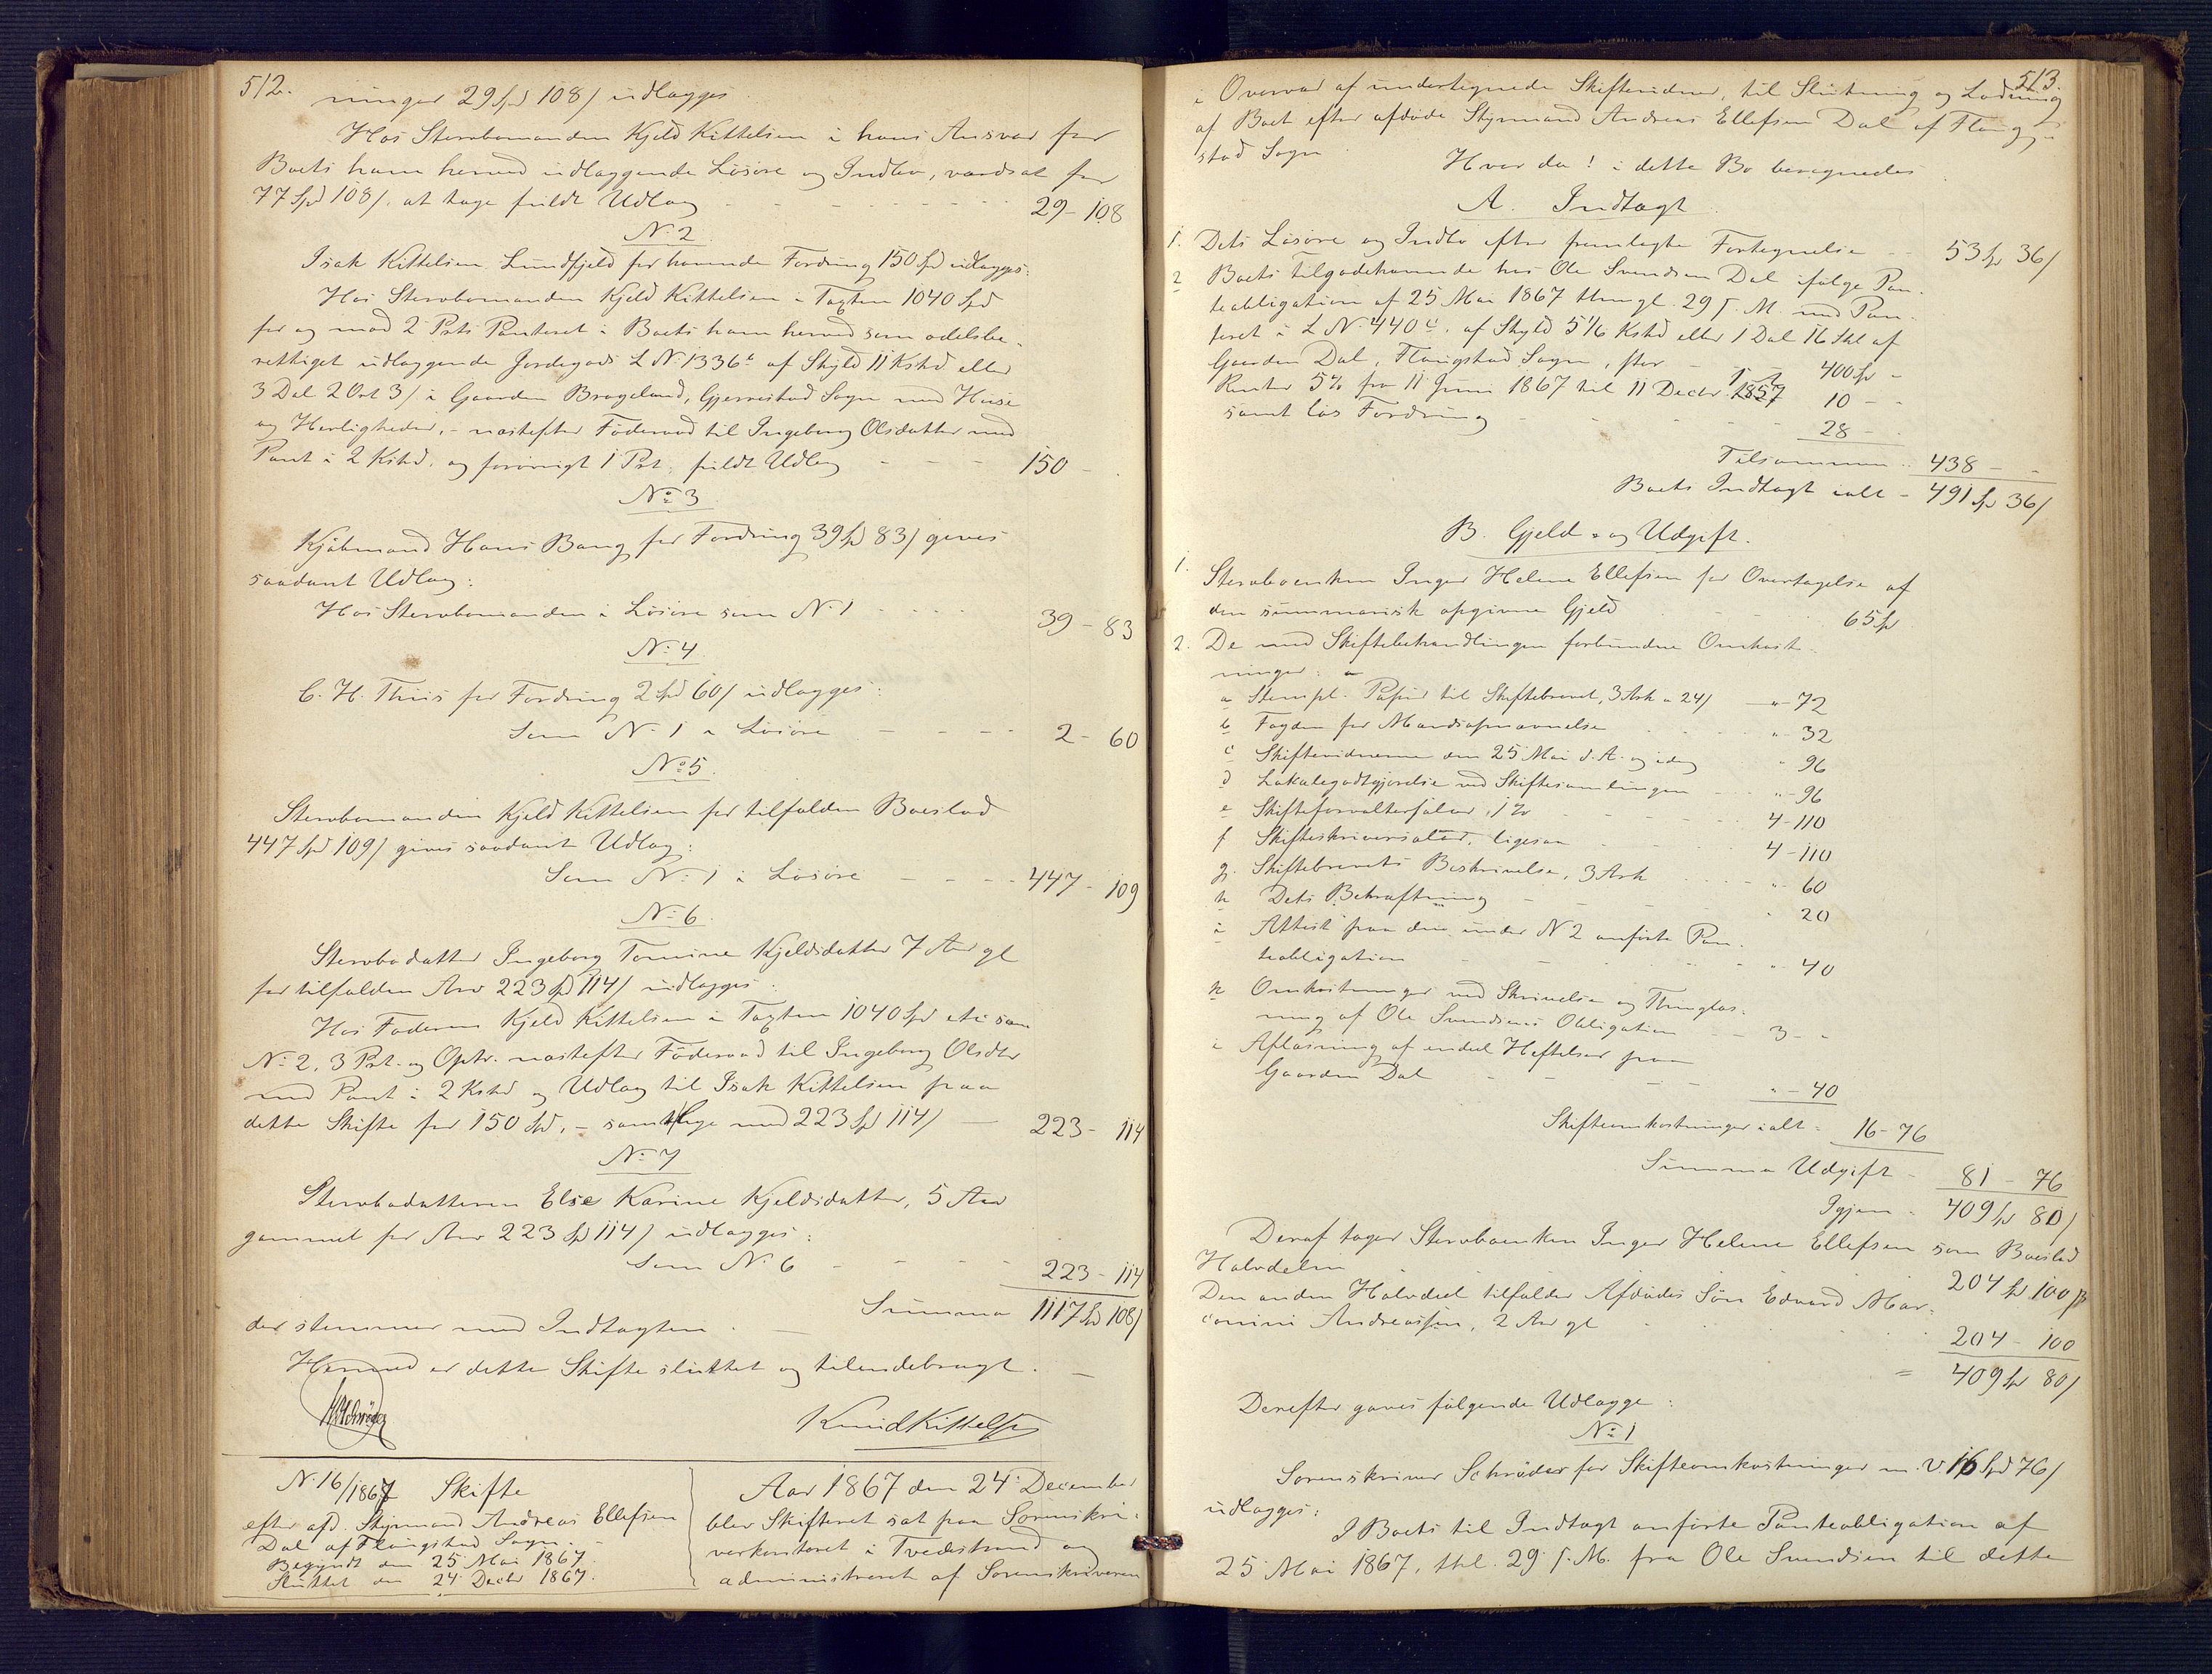 512.
ninger 29 Spd 108 / udlægges
Hos Stervbomanden Kjeld Kittelsen i hans Ansvar for
Boets ham herved udlæggende Løsøre og Indbo, værdsat for
77 Spd 108 /. at tage fuldt Udlæg - - - 29 - 108
N: 2
Isak Kittelsen Lundfjeld for havende Fordring 150 Spd udlægges:
Hos Stervbomanden Kjeld Kittelsen i Taxten 1040 Spd
for og mod 2 Prts Panteret i Boets ham herved som odelsbe-
rettiget udlæggende Jordegods L N: 1336 af Skyld 11 Kshd eller
3 Dal 2 Ort 3 / i Gaarden Brageland, Gjerrestad Sogn med Huse
og Herligheder, - næstefter Föderaad til Ingeborg Olsdatter med
Pant i 2 Kshd. og forøvrigt 1 Prt. fuldt Udlæg - - - 150 -
No 3
Kjøbmand Hans Bang for Fordring 39 Spd 83 / gives
saadant Udlæg:
Hos Stervbomanden i Løsøre som N: 1 - - - 39 - 83
N: 4
C. H. Thiis for Fordring 2 Spd 60 / udlægges:
Som N: 1 i Løsøre - - - 2 - 60
No 5
Stervbomanden Kjeld Kittelsen for tilfalden Boeslod
447 Spd 109 / gives saadant Udlæg:
Som N: 1 i Løsøre - - - 447 - 109
N: 6
Stervbodatter Ingeborg Tomine Kjeldsdatter 7 Aar gl
for tilfalden Arv 223 Spd 114 / udlægges:
Hos Faderen Kjeld Kittelsen i Taxten 1040 Spd etc som
N: 2, 3 Prt. og Optr. næstefter Föderaad til Ingeborg Olsdtr
med Pant i 2 Kshd og Udlæg til Isak Kittelsen paa
dette Skifte for 150 Spd, - samt lige med 223 Spd 114 / - 223 - 114
N: 7
Stervbodatteren Else Karine Kjeldsdatter, 5 Aar
gammel for Arv 223 Spd 114 / udlægges:
Som N: 6 - - - 223 - 114
Summa 1117 Spd 108 /
der stemmer med Indtægten.
Hermed er dette Skifte sluttet og tilendebragt.
Schrøder
Knud Kittelsen
N: 16/1867 Skifte
efter afd. Styrmand Andreas Ellefsen
Dal af Flangstad Sogn.
Begyndt den 25 Mai 1867.
Sluttet den 24 Decbr 1867.
Aar 1867 den 24: December
blev Skifteret sat paa Sorenskri-
verkontoret i Tvedestrand og
administreret af Sorenskriveren
513.
i Overvær af undertegnede Skiftevidner, til Slutning og Lodning
af Boet efter afdøde Styrmand Andreas Ellefsen Dal af Flang-
stad Sogn.
Hvor da! i dette Bo beregnedes
A. Indtægt.
1. Dets Løsøre og Indbo efter fremlagte Fortegnelse - - 53 Sp 36 /
2 Boets Tilgodehavende hos Ole Svendsen Dal ifølge Pan-
teobligation af 25 Mai 1867 thingl. 29 s. M. med Pan-
teret i L N: 440 c. af Skyld 5 1/6 Kshd eller 1 Dal 16 Skl af
Gaarden Dal, Flangstad Sogn, stor - 400 Sp -
Renter 5% fra 11 Juni 1867 til 11 Decbr. 1857 10 - -
samt løs Fordring - - - 28 -
Tilsammen 438 - -
Boets Indtægt ialt - 491 Sp 36 /
B. Gjeld - og Udgift.
1. Stervboenken Inger Helene Ellefsen for Overtagelse af
den summarisk opgivne Gjeld - - 65 Sp
2. De med Skiftebehandlingen forbundne Omkost-
ninger:
a Stempl. Papir til Skiftebrevet, 3 Ark a 24 / " - 72
b Fogden for Mandsopnævnelse " - 32
c Skiftevidnerne den 25 Mai d. A. og idag " 96
d Lokalegodtgjørelse ved Skiftesamlingen " - 96
e Skifteforvaltersalær, 1 % 4 - 110
f Skifteskriversalær, ligesaa 4 - 110
g. Skiftebrevets Beskrivelse, 3 Ark " - 60
h Dets Bekræftning " 20
i Attest paa den under N 2 anførte Pan-
teobligation " - 40
k Omkostninger ved Skrivelse og Thinglæs-
ning af Ole Svendsens Obligation 3 - "
Aflæsning af endel Heftelser paa
Gaarden Dal " - 40
Skifteomkostninger ialt - 16 - 76
Summa Udgift - 81 - 76
Igjen - 409 Sp 80 /
Deraf tager Stervboenken Inger Helene Ellefsen som Boeslod
Halvdelen 204 Sp 100 /
Den anden Halvdeel tilfalder Afdødes Søn Edvard Mar-
conini Andreassen, 2 Aar gl 204 - 100
= 409 Sp 80 /
Derefter gaves følgende Udlægge:
N: 1
Sorenskriver Schrøder for Skifteomkostninger m. V. 16 Spd 76 /
udlægges:
I Boets til Indtægt anførte Panteobligation af
25 Mai 1867, thl. 29 s. M. fra Ole Svendsen til dette